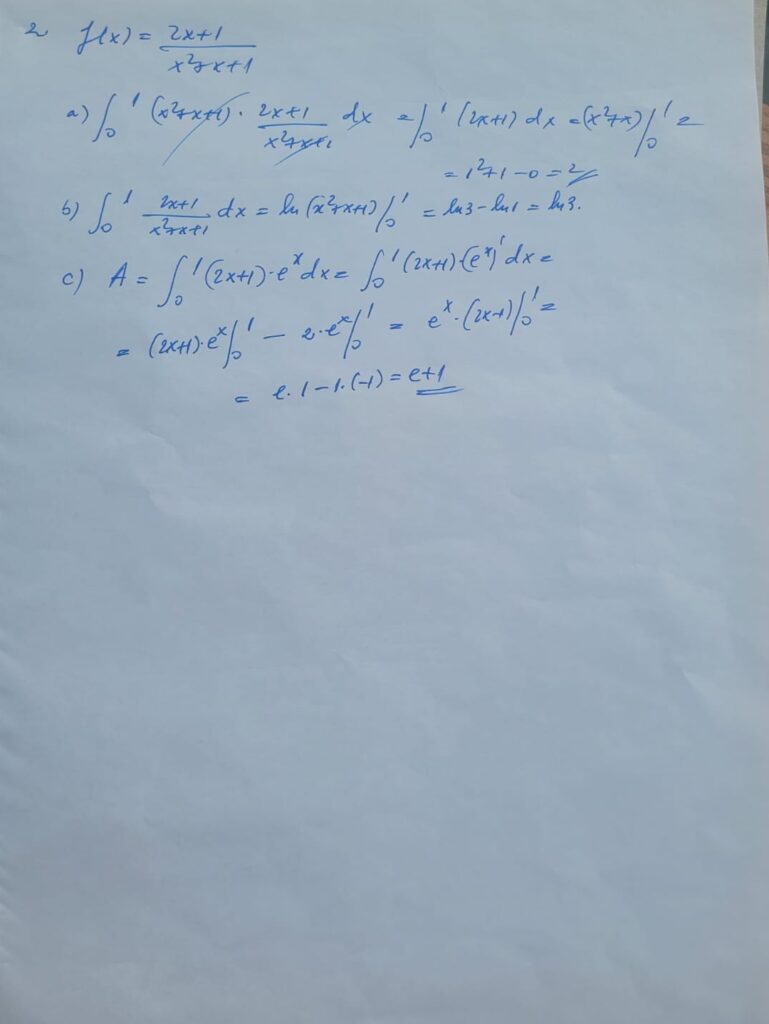 2 f(x) = (2x+1)/(x²+x+1)
a) ∫₀¹ (x²+x+1) · (2x+1)/(x²+x+1) dx = ∫₀¹ (2x+1) dx = (x²+x)|₀¹ =
= 1²+1-0 = 2
b) ∫₀¹ (2x+1)/(x²+x+1) dx = ln(x²+x+1)|₀¹ = ln3 - ln1 = ln3.
c) A = ∫₀¹ (2x+1)·eˣdx = ∫₀¹ (2x+1)·(eˣ)' dx =
= (2x+1)·eˣ|₀¹ - 2·eˣ|₀¹ = eˣ·(2x-1)|₀¹ =
= e·1-1·(-1) = e+1